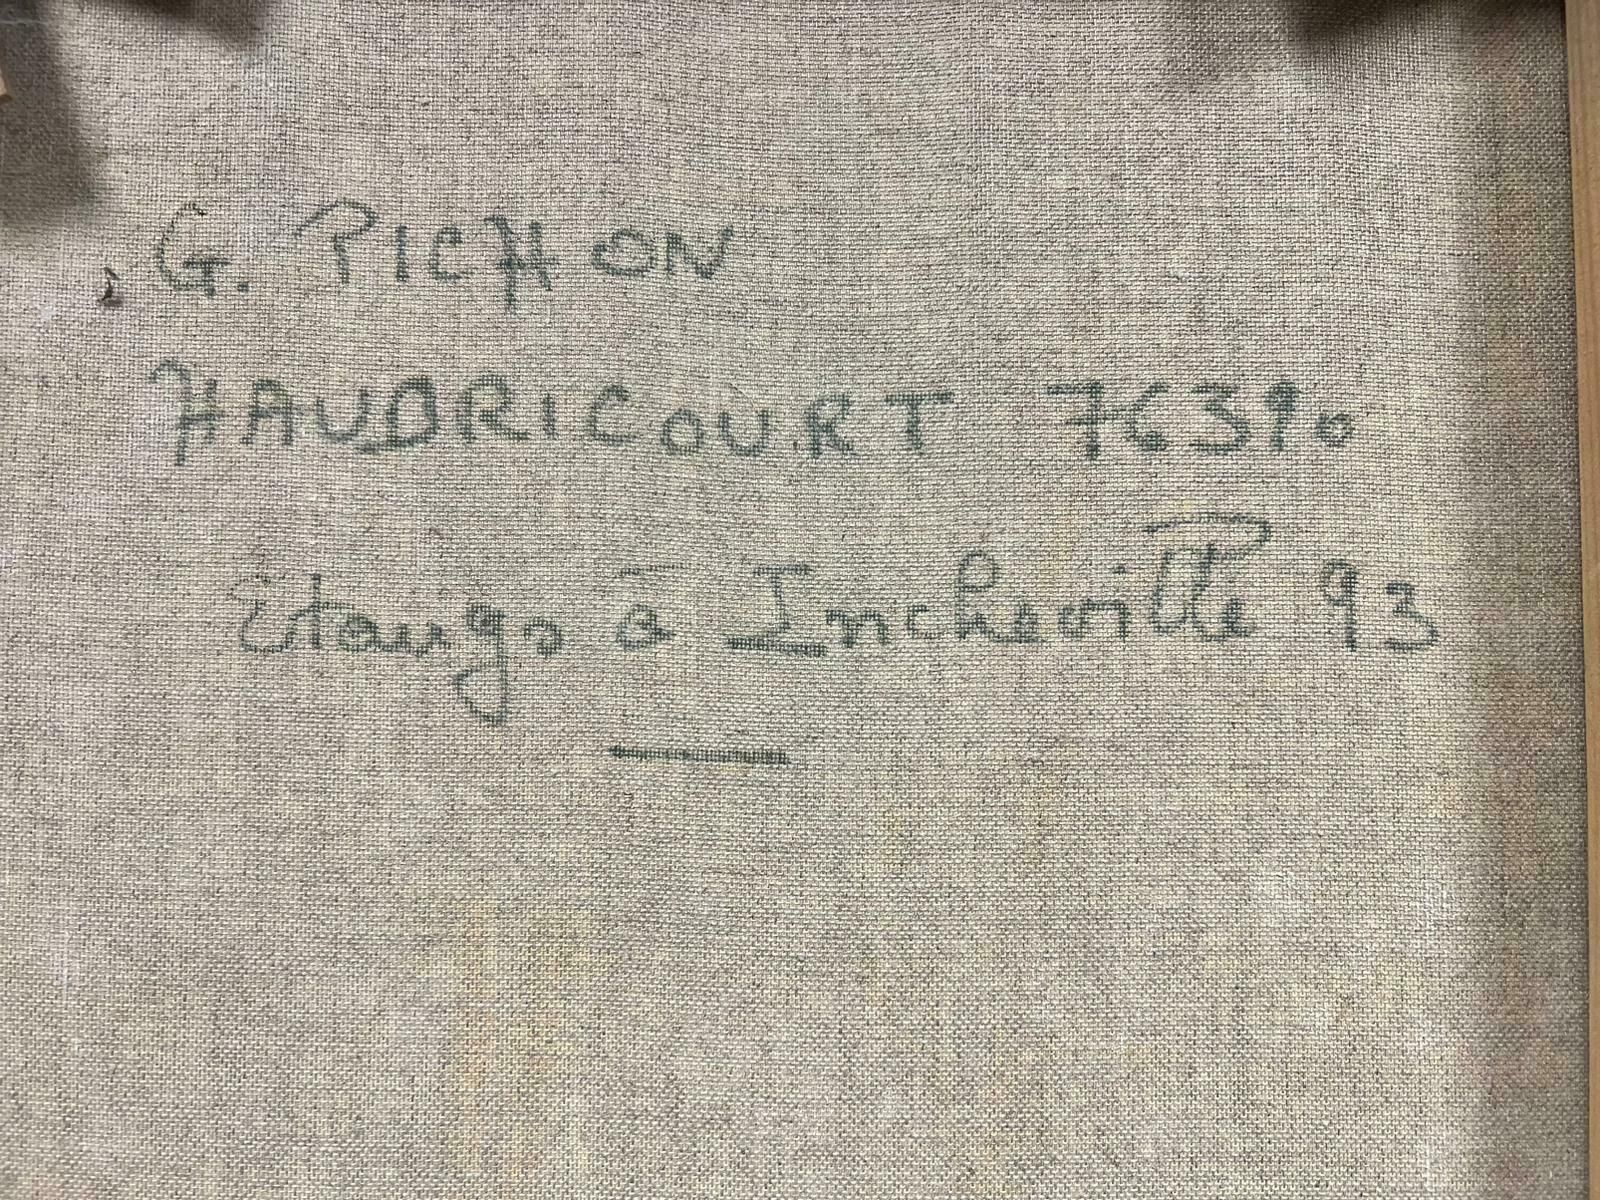 G. PICHON
HAUDRICOURT 76390
Etangs à Incheville 93